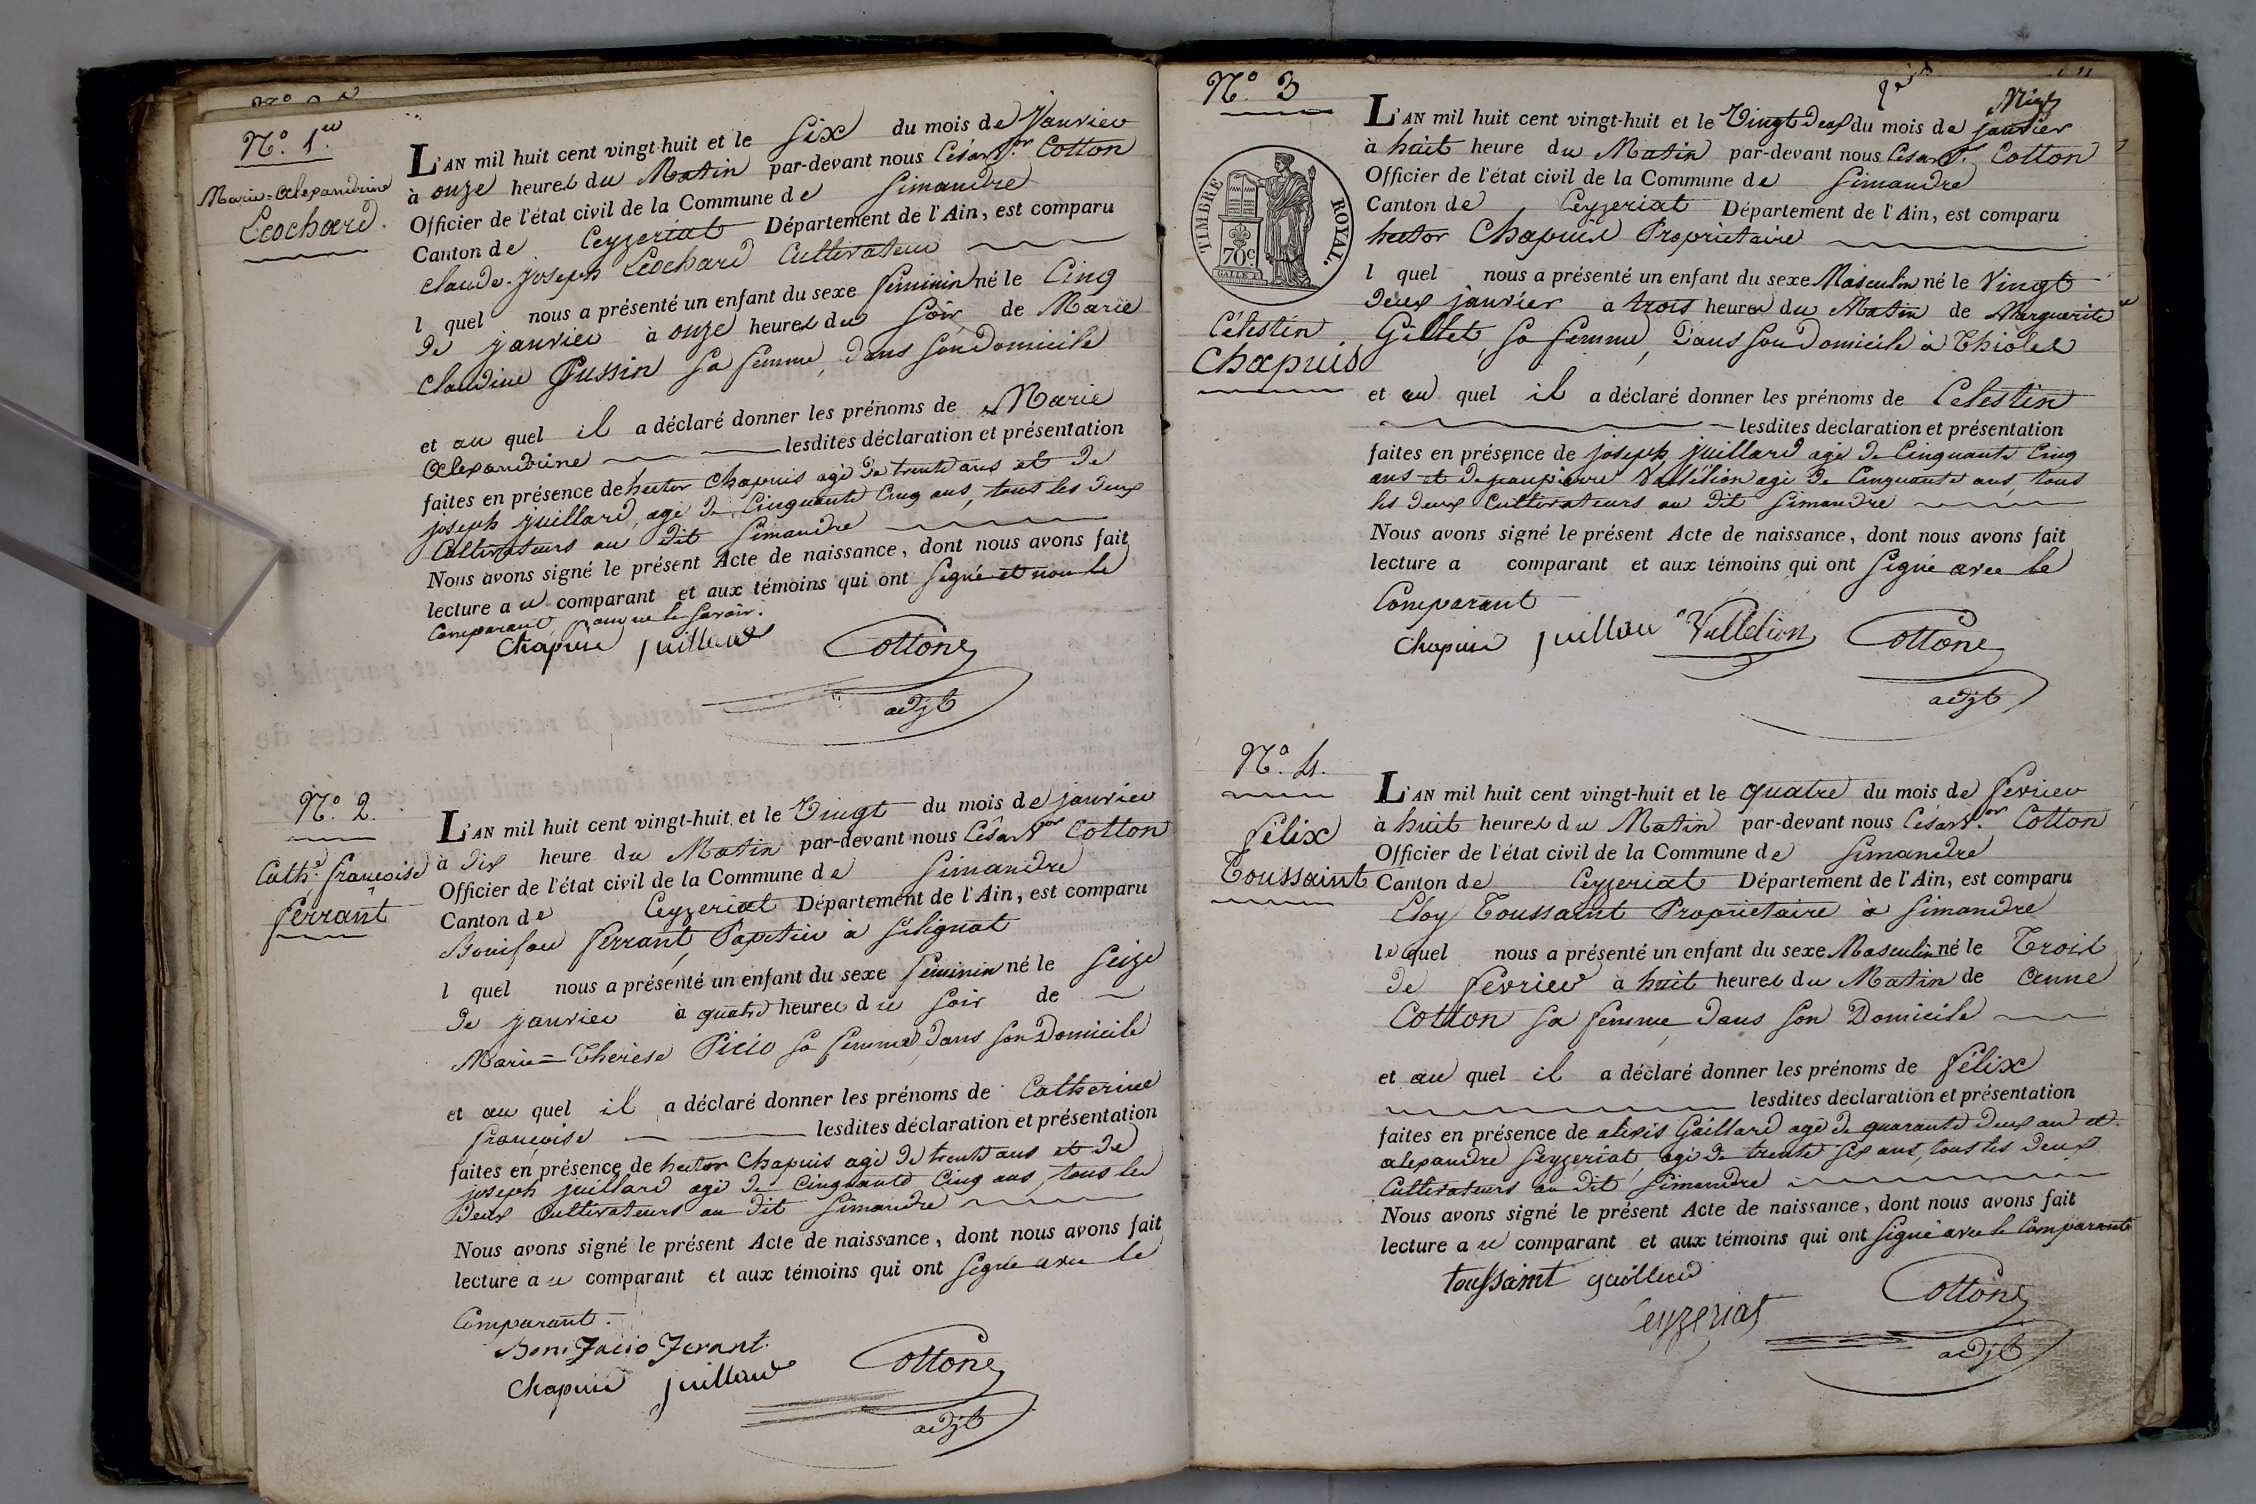 N.º 1.er
Marie=Alexandrine
Léochard.
L'AN mil huit cent vingt-huit et le Six du mois de Janvier
à onze heures du Matin par-devant nous César Cotton
Officier de l'état civil de la Commune de Simandre
Canton de Ceyzeriat Département de l'Ain, est comparu
Claude-joseph Léochard Cultivateur
l quel nous a présenté un enfant du sexe féminin né le Cinq
de janvier à onze heures du Soir de Marie
Claudine Pussin sa femme, dans son Domicile
et au quel il a déclaré donner les prénoms de Marie
Alexandrine lesdites déclaration et présentation
faites en présence de hector Chapuis agé de trente ans et de
joseph juillard, agé de Cinquante Cinq ans, tous les deux
Cultivateurs au dit Simandre
Nous avons signé le présent Acte de naissance, dont nous avons fait
lecture au comparant et aux témoins qui ont Signé et non le
Comparant, pour ne le Savoir.
Chapuis juillard Cottone
adjt
N.º 2.
Cath.e françoise
ferrant
L'AN mil huit cent vingt-huit et le Vingt du mois de janvier
à dix heure du Matin par-devant nous César Cotton
Officier de l'état civil de la Commune de Simandre
Canton de Ceyzeriat Département de l'Ain, est comparu
Boniface ferrant, Papetier à Sélignat
l quel nous a présenté un enfant du sexe féminin né le Seize
de janvier à quatre heures du Soir de
Marie=Thérèse Picio sa femme, dans son Domicile
et au quel il a déclaré donner les prénoms de Catherine
françoise lesdites déclaration et présentation
faites en présence de hector Chapuis agé de trente ans et de
joseph juillard agé de Cinquante Cinq ans, tous les
Deux Cultivateurs au dit Simandre
Nous avons signé le présent Acte de naissance, dont nous avons fait
lecture au comparant et aux témoins qui ont Signé avec le
Comparant.
Bonifacio Ferant
Chapuis juillard Cottone
adjt
N.º 3
TIMBRE ROYAL.
70c
Célestin
Chapuis
L'AN mil huit cent vingt-huit et le Vingt deux du mois de janvier
à huit heure du Matin par-devant nous César Cotton
Officier de l'état civil de la Commune de Simandre
Canton de Ceyzeriat Département de l'Ain, est comparu
hector Chapuis Proprietaire
l quel nous a présenté un enfant du sexe Masculin né le Vingt
deux janvier à trois heures du Matin de Marguerite
Gillet, sa femme, dans son Domicile à Thioles
et au quel il a déclaré donner les prénoms de Célestin
lesdites déclaration et présentation
faites en présence de joseph juillard agé de Cinquante Cinq
ans et de jeanpierre Vallélion agé de Cinquante ans, tous
les deux Cultivateurs au dit Simandre
Nous avons signé le présent Acte de naissance, dont nous avons fait
lecture a comparant et aux témoins qui ont Signé avec le
Comparant
Chapuis juillard Vallelion Cottone
adjt
N.º 4.
félix
Toussaint
L'AN mil huit cent vingt-huit et le quatre du mois de février
à huit heures du Matin par-devant nous César Cotton
Officier de l'état civil de la Commune de Simandre
Canton de Ceyzeriat Département de l'Ain, est comparu
Eloy Toussaint Proprietaire à Simandre
le quel nous a présenté un enfant du sexe Masculin né le Trois
de février à huit heures du Matin de Anne
Cotton sa femme, dans son Domicile
et au quel il a déclaré donner les prénoms de félix
lesdites déclaration et présentation
faites en présence de alexis Gaillard agé de quarante deux ans et
alexandre Seyzeriat, agé de trente six ans, tous les deux
Cultivateurs au dit Simandre
Nous avons signé le présent Acte de naissance, dont nous avons fait
lecture au comparant et aux témoins qui ont Signé avec le Comparant
toussaint gaillard Cottone
Ceyzeriat
adjt